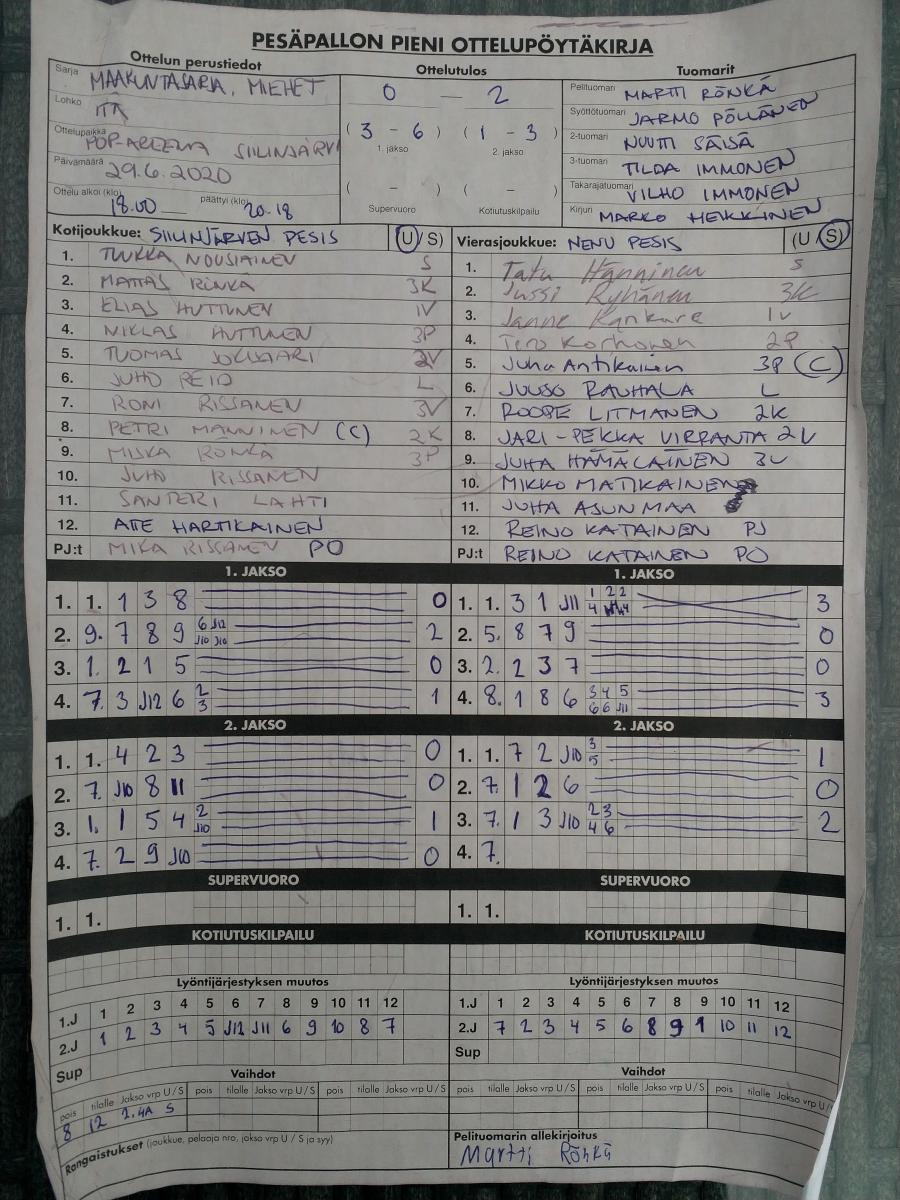 PESÄPALLON PIENI OTTELUPÖYTÄKIRJA
Ottelun perustiedot
Sarja MAAKUNTASARJA, MIEHET
Lohko ITÄ
Ottelupaikka POP-AREENA SIILINJÄRVI
Päivämäärä 29.6.2020
Ottelu alkoi (klo) 18.00 päättyi (klo) 20.18
Ottelutulos
0 — 2
( 3 - 6 ) ( 1 - 3 )
1. jakso 2. jakso
( - ) ( - )
Supervuoro Kotiutuskilpailu
Tuomarit
Pelituomari MARTTI RÖNKÄ
Syöttötuomari JARMO PÖLLÄNEN
2-tuomari NUUTTI SÄISÄ
3-tuomari TILDA IMMONEN
Takarajatuomari VILHO IMMONEN
Kirjuri MARKO HEIKKINEN
Kotijoukkue: SIILINJÄRVEN PESIS (U/S)
1. TUUKKA NOUSIAINEN S
2. MATIAS RÖNKÄ 3K
3. ELIAS HUTTUNEN 1V
4. NIKLAS HUTTUNEN 3P
5. TUOMAS JOKISAARI 2V
6. JUHO REID L
7. RONI RISSANEN 3V
8. PETRI MÄNNINEN (C) 2K
9. MISKA RÖNKÄ 3P
10. JUHO RISSANEN
11. SANTERI LAHTI
12. ATE HARTIKAINEN
PJ:t MIKA RISSANEN PO
Vierasjoukkue: NENU PESIS (U/S)
1. Tatu Hänninen S
2. Jussi Ryhänen 3K
3. Janne Kankare 1V
4. Tero Korhonen 2P
5. Juha Antikainen 3P (C)
6. JUUSO RAUHALA L
7. ROOPE LITMANEN 2K
8. JARI-PEKKA VIRRANTA 2V
9. JUHA HÄMÄLÄINEN 3V
10. MIKKO MATIKAINEN
11. JUHA ASUNMAA
12. REINO KATAINEN PJ
PJ:t REINO KATAINEN PO
1. JAKSO
1. 1. 1 3 8 0
2. 9. 7 8 9 6 J12 J10 J10 2
3. 1. 2 1 5 0
4. 7. 3 J12 6 2 3 1
2. JAKSO
1. 1. 4 2 3 0
2. 7. J10 8 11 0
3. 1. 1 5 4 2 J10 1
4. 7. 2 9 J10 0
SUPERVUORO
1. 1.
KOTIUTUSKILPAILU
1. JAKSO
1. 1. 3 1 J11 1 2 2 4 4 3
2. 5. 8 7 9 0
3. 2. 2 3 7 0
4. 8. 1 8 6 3 4 5 6 6 J11 3
2. JAKSO
1. 1. 7 2 J10 3 5 1
2. 7. 1 2 6 0
3. 7. 1 3 J10 2 3 4 6 2
4. 7.
SUPERVUORO
1. 1.
KOTIUTUSKILPAILU
Lyöntijärjestyksen muutos
1.J 1 2 3 4 5 6 7 8 9 10 11 12
2.J 1 2 3 4 5 J12 J11 6 9 10 8 7
Sup
Vaihdot
pois tilalle Jakso vrp U/S pois tilalle Jakso vrp U/S pois
8 12 2.4A S
Rangaistukset (joukkue, pelaaja nro, jakso vrp U/S ja syy)
Lyöntijärjestyksen muutos
1.J 1 2 3 4 5 6 7 8 9 10 11 12
2.J 7 2 3 4 5 6 8 9 1 10 11 12
Sup
Vaihdot
tilalle Jakso vrp U/S pois tilalle Jakso vrp U/S pois tilalle Jakso vrp U/S
Pelituomarin allekirjoitus
Martti Rönkä